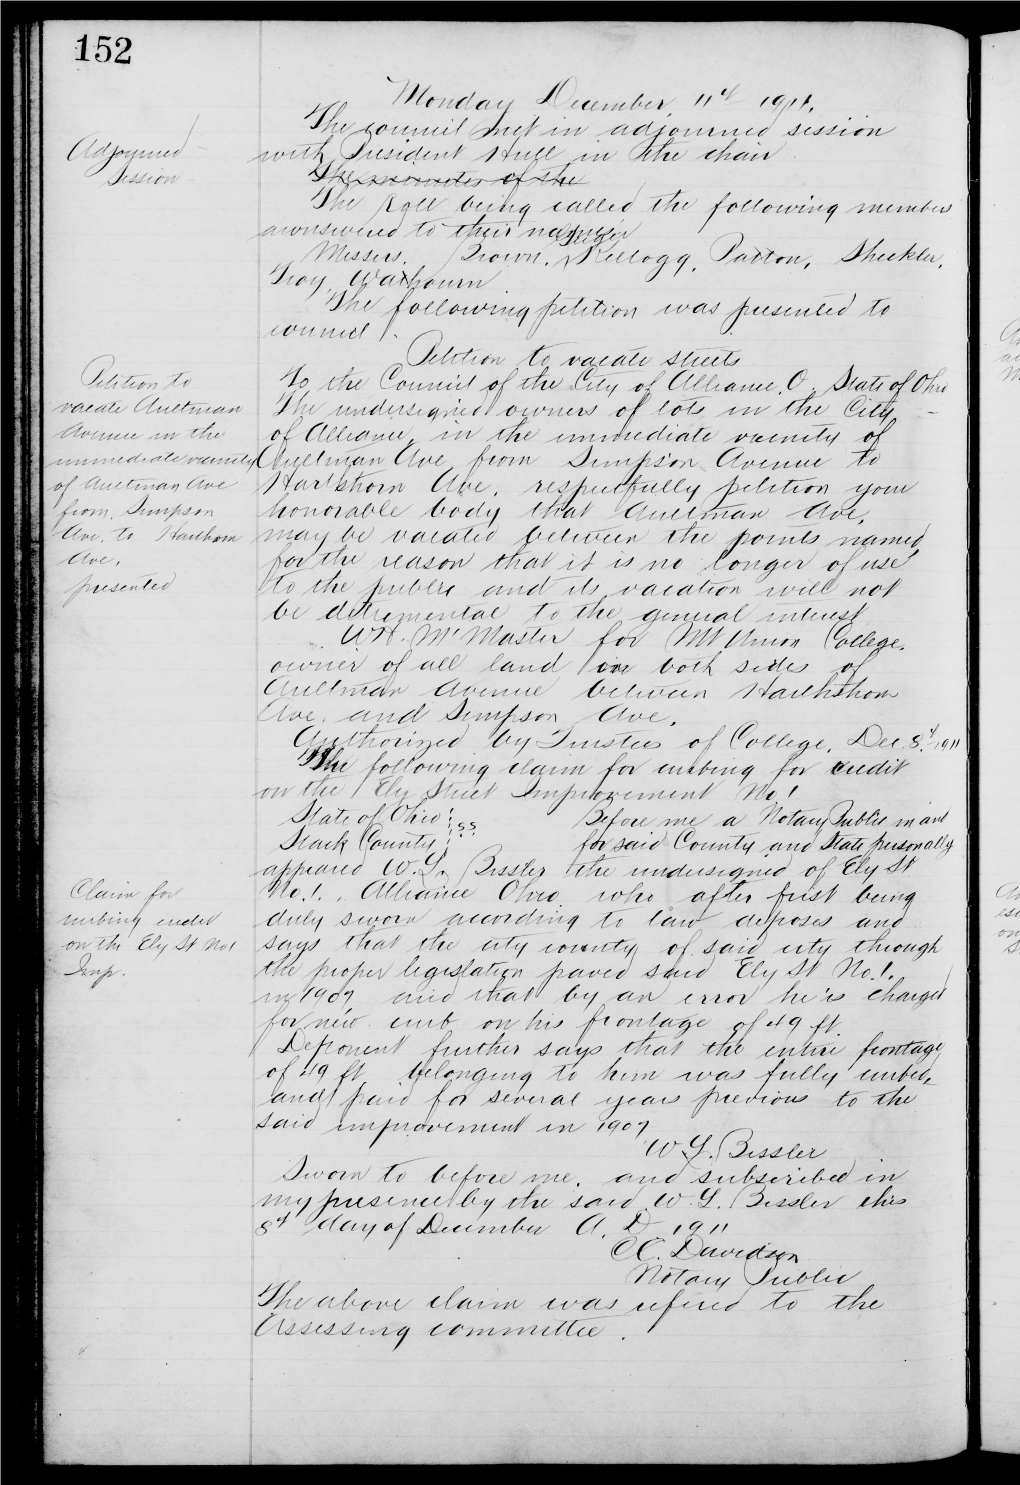 152
Monday December 11th 1911.
The council met in adjourned session
with President Hull in the chair
The minutes of the
The Roll being called the following members
awnswered to their names
Messers. Brown, Kellogg, Paxton, Sheckler,
Troy, Warhourn
The following petition was presented to
council.
Petition to vacate streets
To the Council of the City of Alliance, O. State of Ohio
The undersigned owners of lots in the City
of Alliance, in the immediate vicinity of
Aultman Ave from Simpson Avenue to
Hartshorn Ave, respectfully petition your
honorable body that Aultman Ave,
may be vacated between the points named,
for the reason that it is no longer of use
to the public and its vacation will not
be detremental to the general interest
W.H. McMaster for Mt Union College,
owner of all land on both sides of
Aultman Avenue between Harthshorn
Ave. and Simpson Ave.
Authorized by Trustees of College, Dec. 8th 1911
The following claim for curbing for credit
on the Ely Street Improvement No 1
State of Ohio } ss Before me a Notary Public in and
Stark County } for said County and State personally
appeared W. Y. Bissler the undersigned of Ely St
No. 1., Alliance Ohio who after first being
duly sworn according to law deposes and
says that the city county of said city through
the proper legislation paved said Ely St No. 1.
in 1907 and that by an error he is charged
for new curb on his frontage of 49 ft.
Deponent further says that the entire frontage
of 49 ft belonging to him was fully curbed,
and paid for several years previous to the
said improvement in 1907
W. Y. Bissler
Sworn to before me, and subscribed in
my presence by the said W. Y. Bissler this
8th day of December A. D. 1911
Davidson
Notary Public
The above claim was refered to the
Assessing committee.
Adjourned
Session
Petition to
vacate Aultman
Avenue in the
immediate vicinity
of Aultman Ave
from Simpson
Ave. to Harthorn
Ave.
presented
Claim for
curbing credit
on the Ely St No 1
Imp.